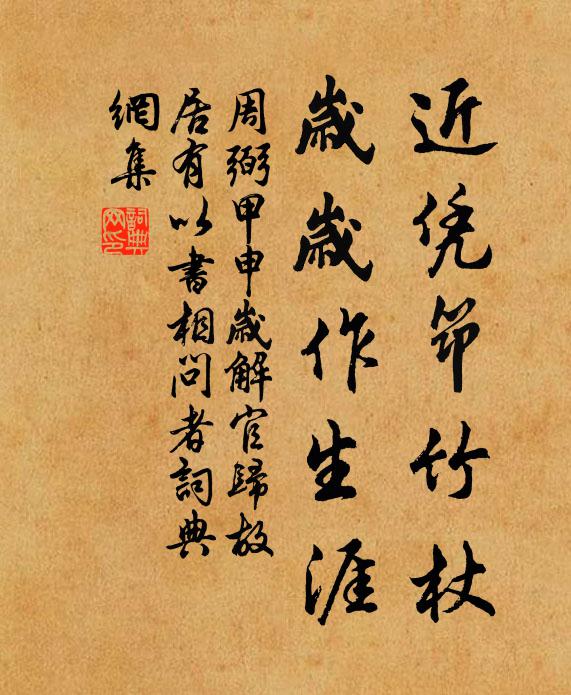 近凭筇竹杖
歲歲作生涯
周弼甲申歲解官歸故
居有以書相問者詞典
網集
詞典
网印